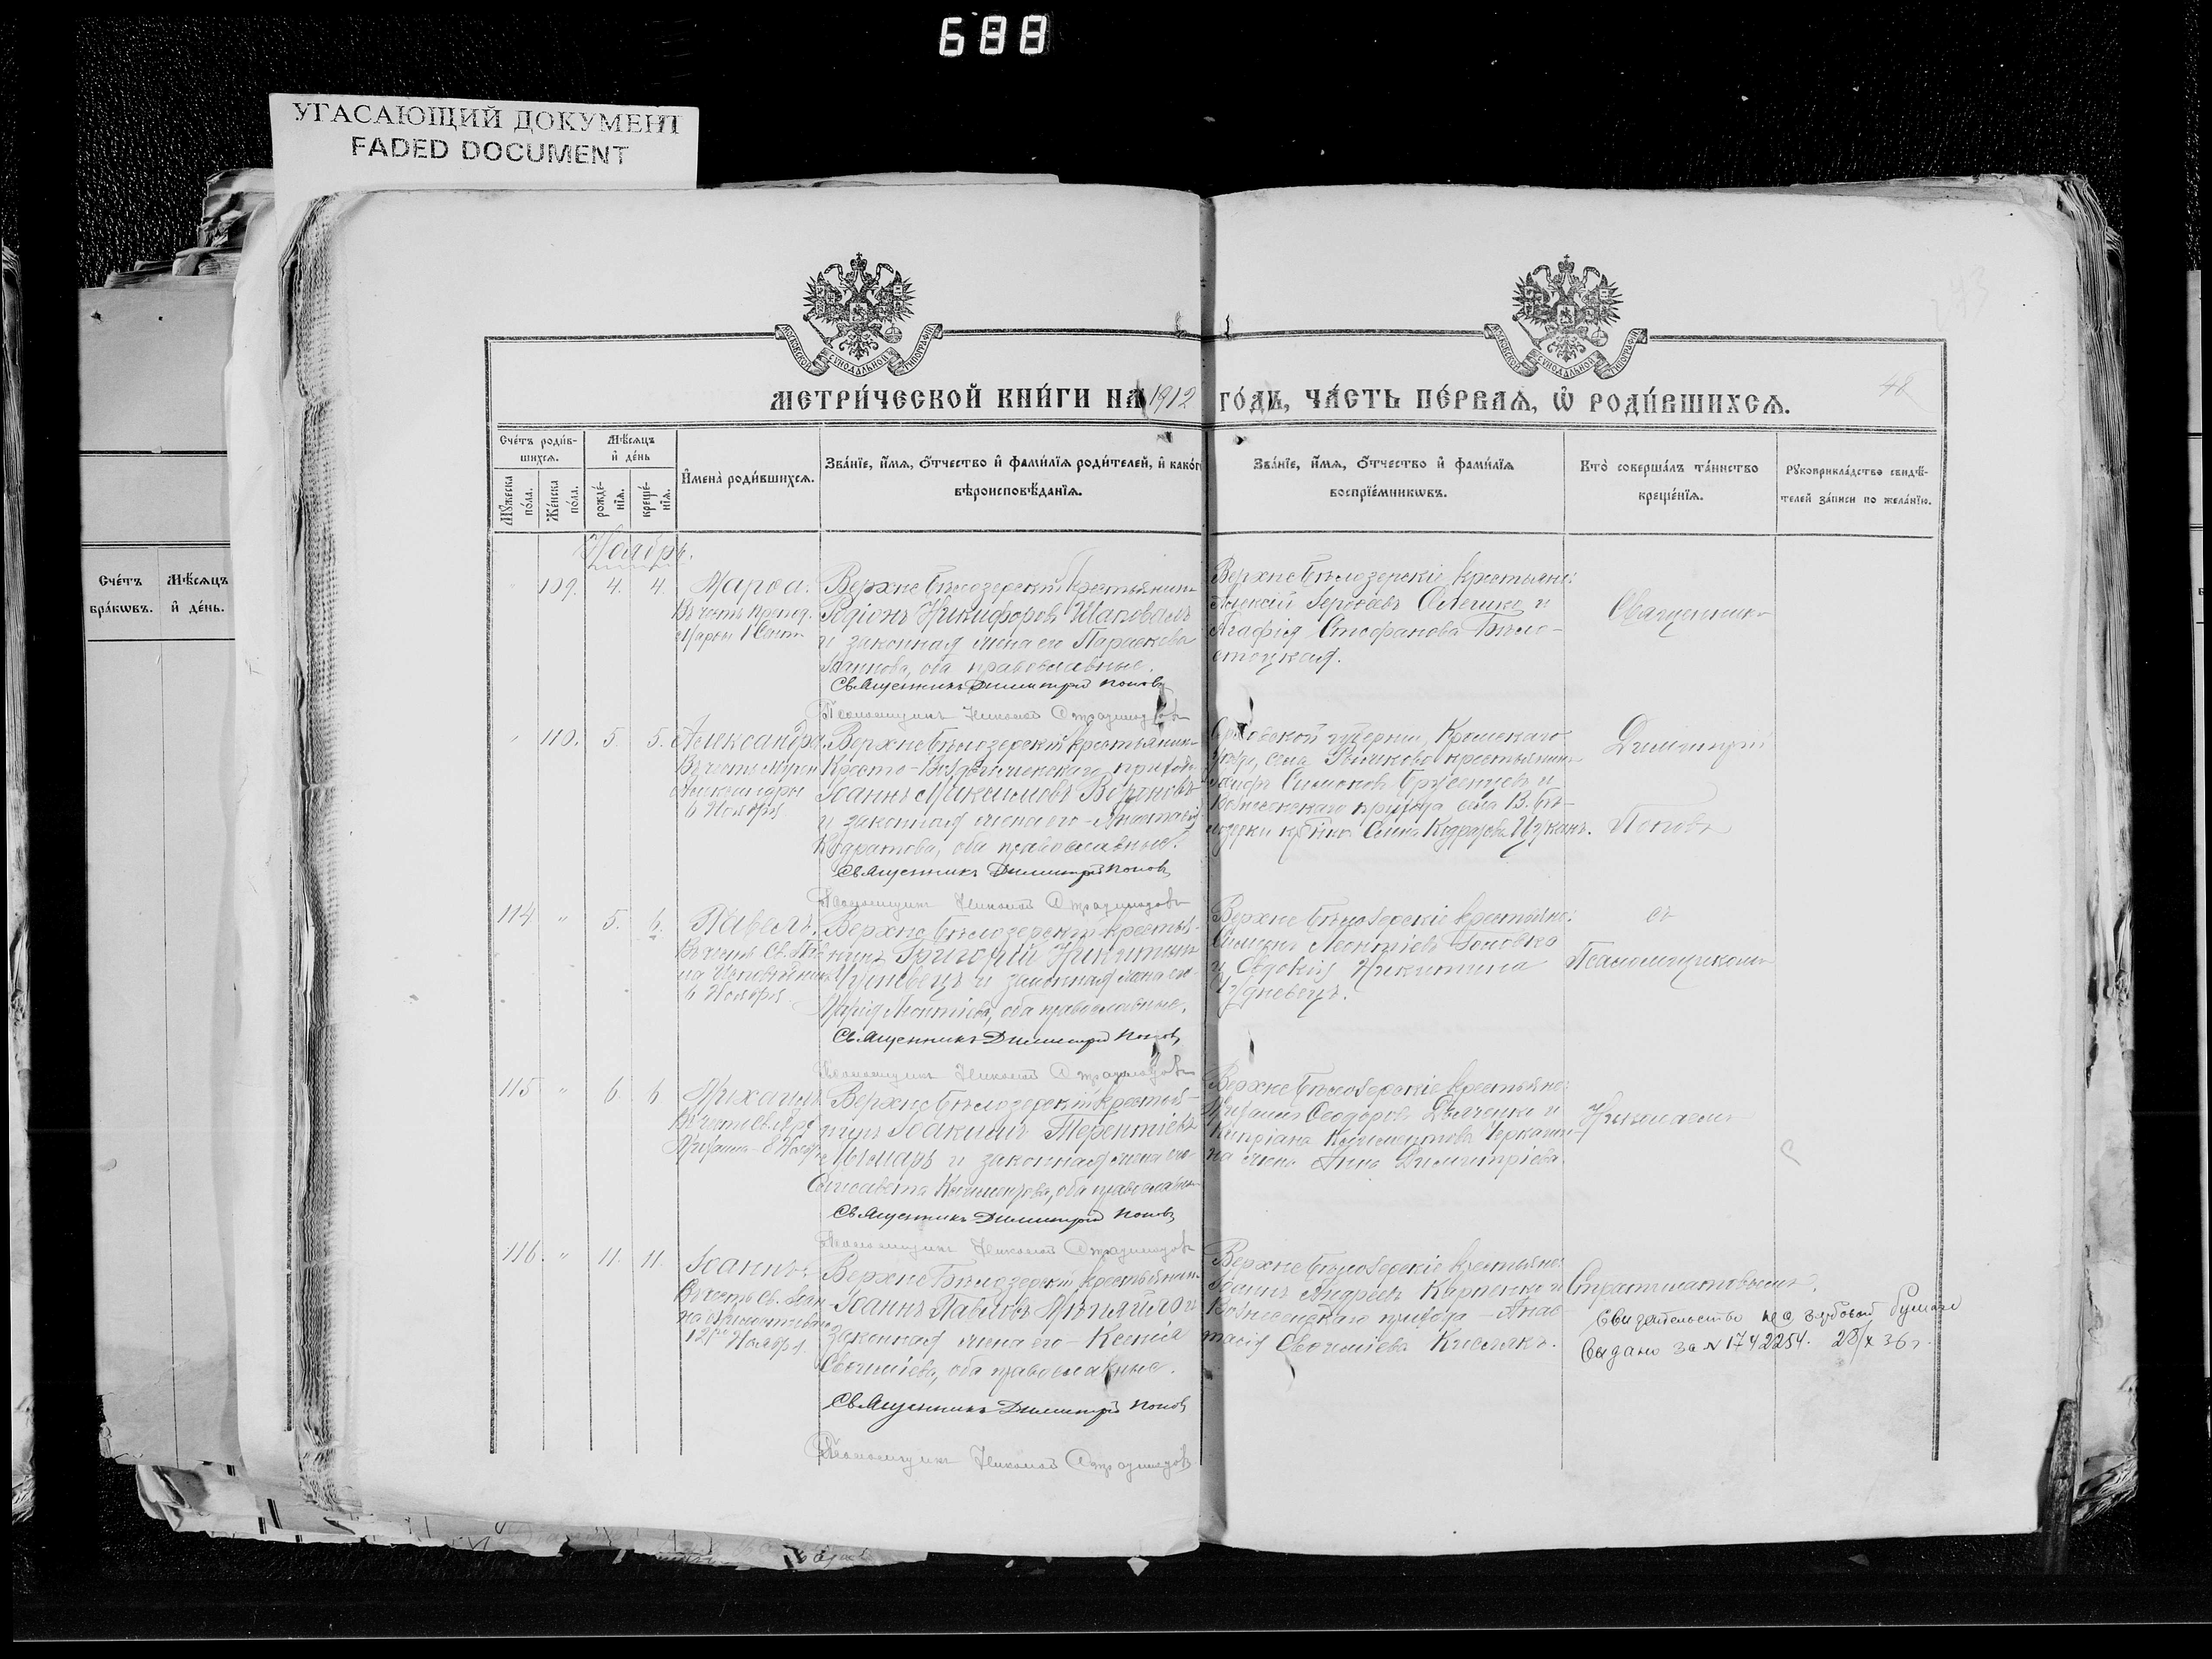 688
УГАСАЮЩИЙ ДОКУМЕНТ
FADED DOCUMENT
МОСКОВСКОЙ СѴНОДАЛЬНОЙ ТИПОГРАФІИ
МОСКОВСКОЙ СѴНОДАЛЬНОЙ ТИПОГРАФІИ
МЕТРИ́ЧЕСКОЙ КНИ́ГИ НА 1912 ГО́ДЪ, ЧА́СТЬ ПЕ́РВАЯ, Ѡ РОДИ́ВШИХСЯ.
48
Сче́тъ
бра́кѡвъ.
Мѣ́сяцъ
и҆ де́нь.
Сче́тъ роди́в-
шихся.
Мѣ́сяцъ
и҆ де́нь
Мꙋ́жеска
по́ла.
Же́нска
по́ла.
рожде́-
нїя.
креще́-
нїя.
И҆мена̀ роди́вшихся.
Зва́нїе, и҆́мя, ѻ҆́тчество и҆ фами́лїя роди́телей, и҆ како́гѡ
вѣроисповѣ́данїя.
Зва́нїе, и҆́мя, ѻ҆́тчество и҆ фами́лїя
воспрїе́мникѡвъ.
Кто̀ соверша́лъ та́инство
креще́нїя.
Рꙋкоприкла́дство свидѣ́-
телей за́писи по жела́нїю.
Ноябрь.
109. 4. 4. Марѳа.
Въ честь препод.
Марѳы 1 Сент.
Верхне Бѣлозерскій крестьянинъ
Родіонъ Никифоровъ Шаповалъ
и законная жена его Параскева
оба православные.
Священникъ Димитрій Поповъ
Псаломщикъ Николай Стратилатовъ
Верхне Бѣлозерскіе крестьяне:
Алексій Олешко и
Агафія Стефанова Бѣло-
стоцкая.
Священникъ
" 110. 5. 5. Александра.
Въ честь мучен.
Александры
6 Ноября
Верхне Бѣлозерскій крестьянинъ
Кресто-Воздвиженскаго прихода
Іоаннъ Максимовъ Вороновъ
и законная жена его Анастасія
Кодратова, оба православные.
Священникъ Димитрій Поповъ
Псаломщикъ Николай Стратилатовъ
губерніи, Кромскаго
уѣзда, села крестьянинъ
Симоновъ и
Вознесенскаго прихода села В. Бѣ-
лозерки
Димитрій
Поповъ
114. " 5. 6. Павелъ.
Въ честь Св. Пав-
ла Исповѣдника
6 Ноября
Верхне Бѣлозерскій крестья-
нинъ Григорій Никитинъ
Чудневецъ и законная жена его
Марія Леонтіева, оба православные.
Священникъ Димитрій Поповъ
Псаломщикъ Николай Стратилатовъ
Верхне Бѣлозерскіе крестьяне:
Леонтіевъ Головко
и Евдокія Никитина
Чудневецъ.
съ
Псаломщикомъ
115 " 6. 6 Михаилъ.
Въ честь Св. Арх.
Михаила 8 Ноября
Верхне Бѣлозерскій крестья-
нинъ Іоакимъ Терентіевъ
и законная жена его
Елисавета оба православные
Священникъ Димитрій Поповъ
Псаломщикъ Николай Стратилатовъ
Верхне Бѣлозерскіе крестьяне:
Михаилъ Ѳеодоровъ и
Кипріана
жена Анна Димитріева.
Николаемъ
116. " 11. 11. Іоаннъ.
Въ честь Св. Іоан-
на Милостиваго
12го Ноября.
Верхне Бѣлозерскій крестьянинъ
Іоаннъ Павловъ и
законная жена его Ксенія
Евѳиміева, оба православные.
Священникъ Димитрій Поповъ
Псаломщикъ Николай Стратилатовъ
Верхне Бѣлозерскіе крестьяне:
Іоаннъ Андреевъ Карпенко и
Вознесенскаго прихода Анас-
тасія Евѳиміева Кислякъ.
Стратилатовымъ.
Свидетельство на гербовой бумаге
выдано за № 1742254. 28/X 36 г.